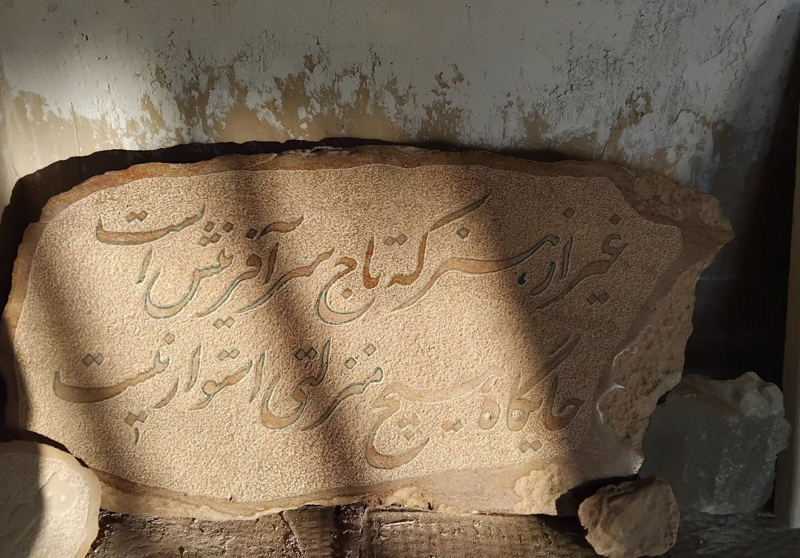 غیر از هنر که تاج سر آفرینش است
جایگاه هیچ منزلتی استوار نیست